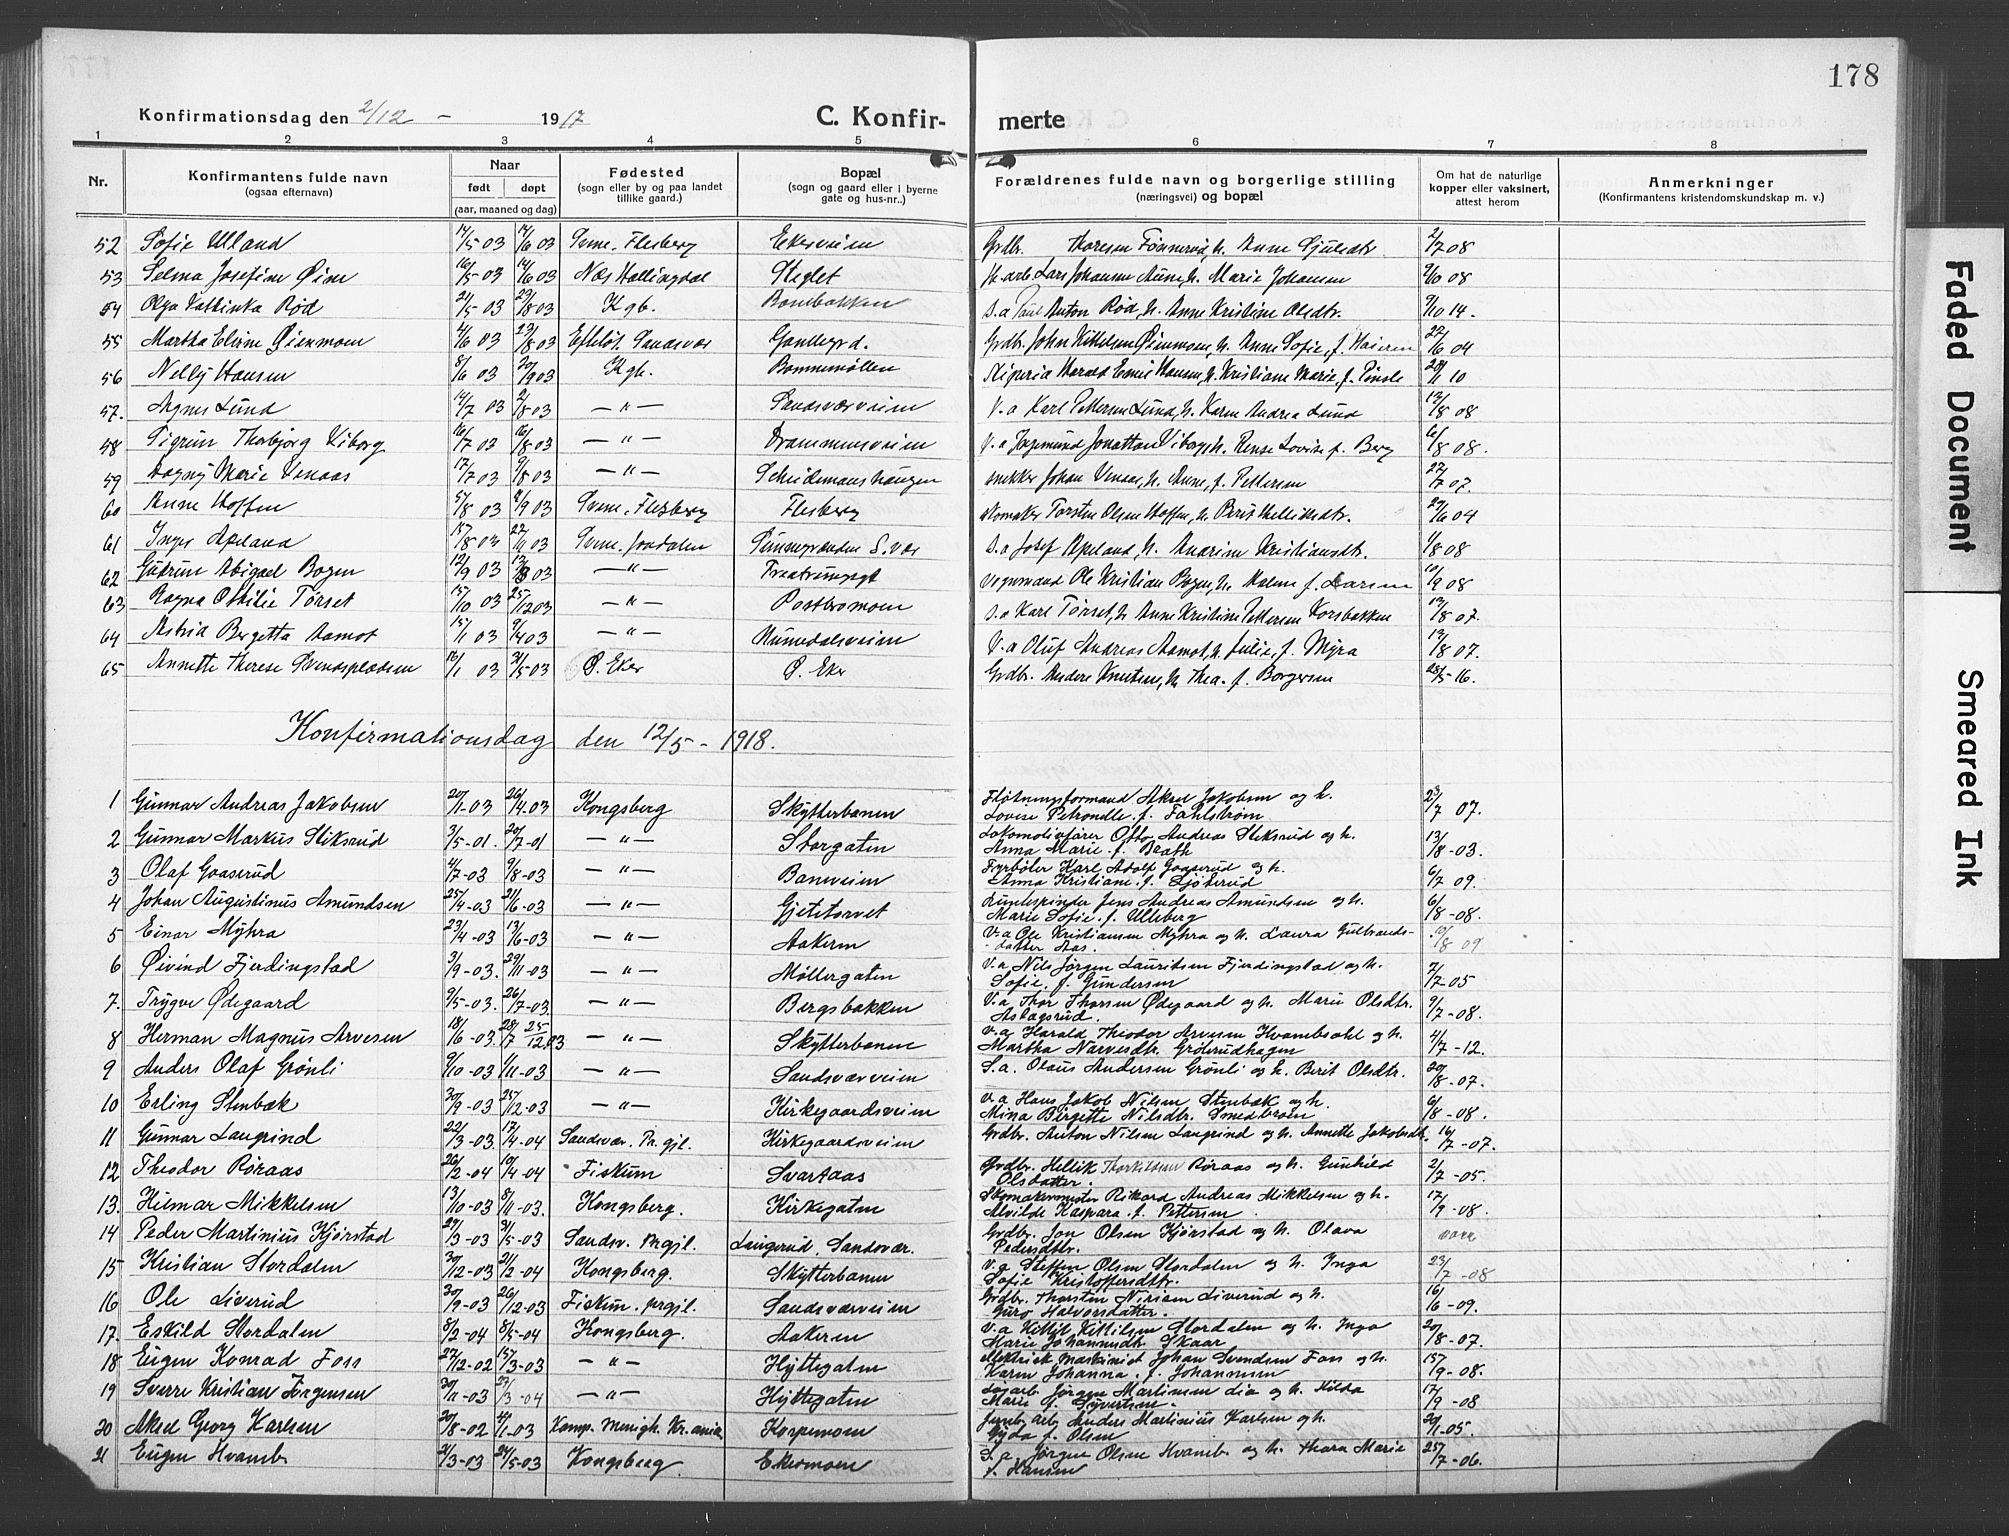 178
Konfirmationsdag den 2/12 - 1917 C. Konfir- merte
1 2 3 4 5 6 7 8
Nr. Konfirmantens fulde navn (ogsaa efternavn) Naar født døpt (aar, maaned og dag) Fødested (sogn eller by og paa landet tillike gaard.) Bopæl (sogn og gaard eller i byerne gate og hus-nr..) Forældrenes fulde navn og borgerlige stilling (næringsvei) og bopæl Om hat de naturlige kopper eller vaksinert, attest herom Anmerkninger (Konfirmantens kristendomskundskap m. v.)
52 Sofie Ulland 17/5 03 14/6 03 Svene, Flesberg Ekersveien Grdbr. Thoresen Anne 2/7 08
53 Selma Josefine 16/5 03 14/6 03 Næs Hallingdal Steglet Lars Johansen Marie Johansen 9/10 08
54 Olga Rød 21/5 03 23/8 03 Kgb. Bombakken S.a Anton Rød, h. Anne Kristine Olsdtr. 9/10 14.
55 Martha Elvine Øienmoen 4/6 03 23/8 03 Efteløt Sandsvær Gamlegrd. Grdbr. John Kittelsen Øienmoen, h. Anne Sofie, f. 22/6 04
56 Nelly Hansen 8/6 03 20/9 03 Kgb. Bommemøllen Harald Emil Hansen, h. Kristiane Marie, f. 28/1 10
57. Agnes Lund 14/7 03 2/8 03 — " — Sandsværveien V.a Karl Pettersen Lund, h. Karen Andrea Lund 13/8 08
58 Sigrun Thorbjørg Viborg 16/7 03 16/8 03 — " — Drammensveien V.a Jonathan Viborg, h. Lovise f. Berg 6/8 08.
59 Dagny Marie Venaas 17/7 03 9/8 03 — " — Scheidemanshaugen snekker Johan Venaas, h. Anne, f. Pettersen 22/7 07.
60 Anne Hoffen 5/8 03 Svene, Flesberg Flesberg skomaker Torsten Olsen Hoffen, h. Berit 29/6 04
61 Inger Apeland 15/8 03 22/11 03 Svene, Jondalen S.vær S.a Josef Apeland, h. Andrine Kristiansdtr. 1/8 08
62 Gudrun Abigael Bogen 12/9 03 — " — Ole Kristian Bogen, h. f. Larsen 10/9 08
63 Ragna Othilie Tørset 15/10 03 25/12 03 — " — Postbromoen S.a Karl Tørset, h. Anne Kristine Pettersen Korsbakken 13/8 07.
64 Astrid Bergetta Aamot 15/1 03 9/4 03 — " — Numedalsveien V.a Oluf Andreas Aamot, h. Julie, f. Myra 13/8 07.
65 Annette Therese 16/1 03 31/5 03 Ø. Eker Ø. Eker Grdbr. Anders Knutsen, h. Thea f. Borgersen 25/5 16.
Konfirmationsdag den 12/5 - 1918.
1 Gunnar Andreas Jakobsen 20/1-03 26/4.03 Kongsberg Skytterbanen Fløtningsformand Aksel Jakobsen og h. Lovise Petronelle f. Fahlstrøm 23/7 07.
2 Gunnar Markus Stiksrud 3/5-01. 20/7-01 — " — Storgaten Lokomotivfører Otto Andreas Stiksrud og h. Anna Marie f. Brath 13/8-03.
3 Olaf Gaaserud 4/7-03 9/8-03 — " — Baneveien Fyrbøter Karl Adolf Gaaserud og h. Anna Kristiane f. Sjøterud 6/7 09.
4 Johan Augustinus Amundsen 25/4-03 21/6-03 — " — Gjetetorvet Jens Andreas Amundsen og h. Marie Sofie f. Ulleberg 6/8-08.
5 Einar Myhra 23/4-03 13/6-03 — " — Aakeren V.a Ole Kristiansen Myhra og h. Laura Gulbrands-datter Aas. 10/8 09
6 Øivind Fjerdingstad 3/9-03. 29/11-03 — " — Møllergaten V.a Nils Jørgen Lauritsen Fjerdingstad og h. Sofie f. Gundersen 7/7-05
7. Trygve Ødegaard 9/5-03. 26/7-03. — " — Bergsbakken V.a Thor Thorsen Ødegaard og h. Marie Olsdtr. Aslagsrud. 9/7-08.
8 Herman Magnus Arvesen 18/6-03. 28/7 25/12.03 — " — Skytterbanen V.a Harald Theodor Arvesen Hvambsahl og h. Martha Narvesdtr. Grøterudhagen 4/7-12.
9 Anders Olaf Grønli 9/10-03 1/11-03 — " — Sandsværveien S.a. Olaus Andersen Grønli og h. Berit Olsdtr. 20/8-07.
10 Erling Stenbæk 30/9-03 25/12-03 — " — Kirkegaardsveien V.a Hans Jakob Nilsen Stenbæk og h. Mina Birgette Nilsdtr. Smedbroen 6/8-08.
11 Gunnar Langrind 22/3-03 17/4-04 Sandsvær. Pr.gjl. Kirkegaardsveien Grdbr. Anton Nilsen Langrind og h. Annette Jakobsdtr. 16/7-07.
12 Theodor Røraas 26/2-04 10/4-04 Fiskum Svartaas Grdbr. Hellik Thorkildsen Røraas og h. Gunhild Olsdatter. 2/7-05.
13. Hilmar Mikkelsen 13/10-03 8/11-03. Kongsberg. Kirkegaten Skomakermester Rikard Andreas Mikkelsen og h. Alvilde Kaspara f. Pettersen 17/9-08.
14 Peder Martinius Kjørstad 29/3-03 3/5-03 Sandsv. Prgjl. Langerud, Sandsvær. Grdbr. Jon Olsen Kjørstad og h. Olava Pedersdtr. vacc
15 Kristian Stordalen 30/12-03 21/2-04 Kongsberg. Skytterbanen V.a Steffen Olsen Stordalen og h. Inga Sofie Kristoffersdtr. 23/7-08
16 Ole Liverud 30/9-03 26/12-03 Fiskum. prgjl. Sandsværveien Grdbr. Thorsten Nirisen Liverud og h. Guro Halvorsdatter. 16/6-09.
17. Eskild Stordalen 8/2-04 8/5-04 Kongsberg. Aakeren V.a Kittil Kittilsen Stordalen og h. Inga Marie Johannesdtr. Skaar 20/8-07.
18 Eugen Konrad Foss 27/12-02 15/3-03 — " — Hyttegaten elektrisk maskinist Johan Svendsen Foss og h. Karen Johanna f. Johannesen 15/9-08.
19 Sverre Kristian Jørgensen 30/11-03 27/3-04 — " — Hyttegaten Jørgen Martinsen Lia og h. Hilda Marie f. Syvertsen. 17/9-08
20 Aksel Georg Karlsen 20/8-02 4/1-03 Kamp. Menigh. Kr.ania Korpemoen Jernb. arb. Anders Martinius Karlsen og h. Gyda f. Olsen 20/1-05.
21 Eugen Hvamb. 21/3-03 24/5-03 Kongsberg Ekermoen S.a. Jørgen Olsen Hvamb. og h. Thora Marie f. Hansen 25/7-06.
Faded Document
Smeared Ink